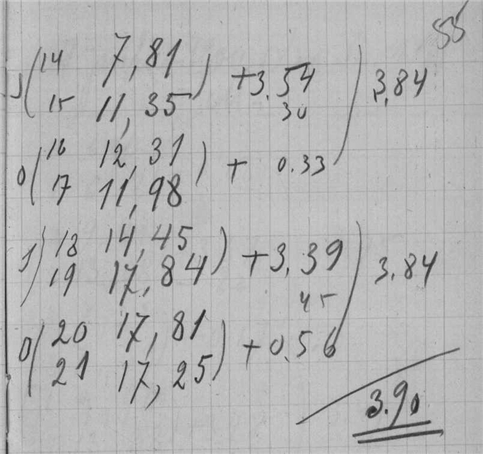 55
1(14 7,81) +3,54) 3,84
15 11,35 30
0(16 12,31) + 0.33
17 11,98
1)18 14,45) +3,39) 3,84
19 17,84 45
0(20 17,81) +0.56
21 17,25
3.90